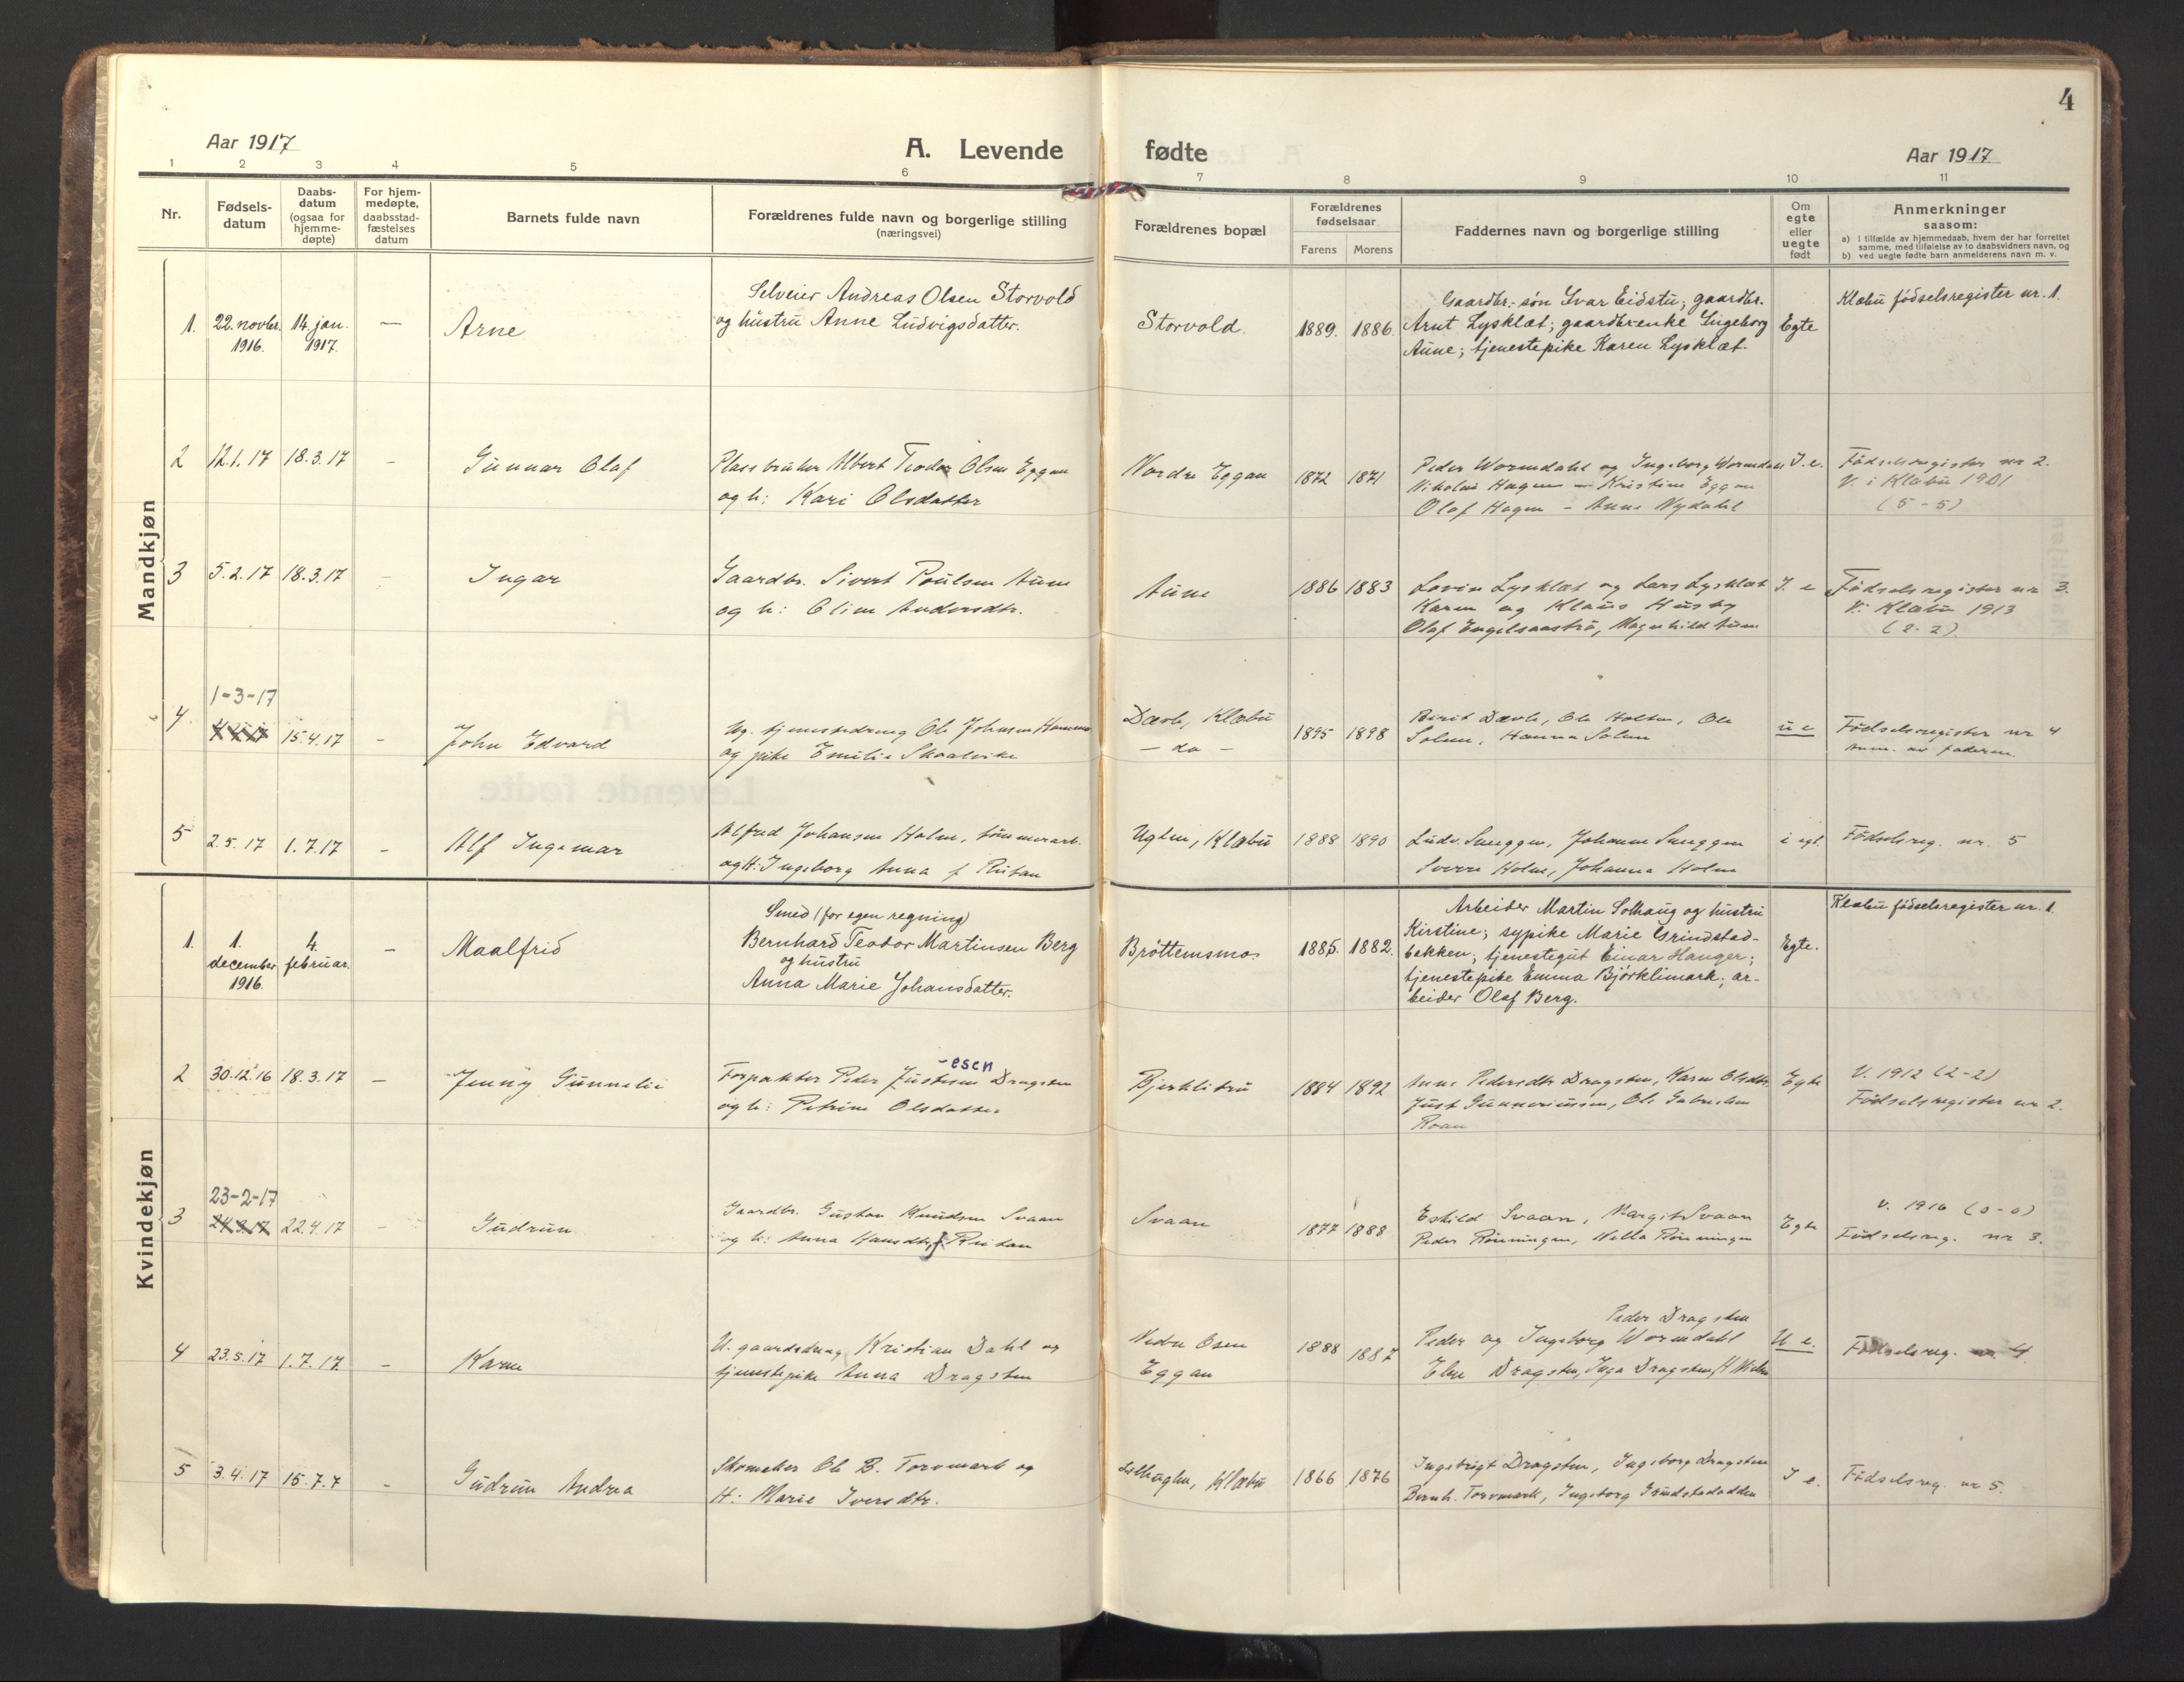 4
Aar 1917
A. Levende fødte
Aar 1917
1 2 3 4 5 6 7 8 9 10 11
Nr.
Fødsels-
datum
Daabs-
datum
(ogsaa for
hjemme-
døpte)
For hjem-
medøpte,
daabsstad-
fæstelses
datum
Barnets fulde navn
Forældrenes fulde navn og borgerlige stilling
(næringsvei)
Forældrenes bopæl
Forældrenes
fødselsaar
Farens Morens
Faddernes navn og borgerlige stilling
Om
egte
eller
uegte
født
Anmerkninger
saasom:
a) i tilfælde av hjemmedaab, hvem der har forrettet
samme, med tilføielse av to daabsvidners navn, og
b) ved uegte fødte barn anmelderens navn m. v.
Mandkjøn
1. 22. novbr. 14. jan. — Arne
1916. 1917.
Selveier Andreas Olsen Storvold
og hustru Anne Ludvigsdatter.
Storvold. 1889. 1886.
Gaardbr.-søn Ivar Eidstu; gaardbr.
Arnt Lysklæt; gaardbr.enke Ingeborg
Aune; tjenestepike Karen Lysklæt.
Egte
Klæbu fødselsregister nr. 1.
2 12.1.17 18.3.17 - Gunnar Olaf
Plassbruker Albert Teodor Olsen Eggen
og h: Kari Olsdatter
Nordre Eggan 1872 1871
Peder Wormdahl og Ingeborg Wormdahl
Nikolai Hagen — Kristine Eggan
Olaf Hagen - Anna Nydahl
I. e.
Fødselsregister nr 2.
V. i Klæbu 1901
(5-5)
3 5.2.17 18.3.17 - Ingar
Gaardbr. Sivert Poulsen Aune
og h: Oline Andersdtr.
Aune 1886 1883
Lovise Lysklæt og Lars Lysklæt
Karen og Klaus Husby
Olaf Engelsaastrø, Magnhild Aune
I. e
Fødselsregister nr 3.
V: Klæbu 1913
(2-2)
1-3-17
4. 15.4.17 - John Edvard
Ug. tjenestedreng Ole Johnsen Hammer
og pike Emilie Skaalvike
Dævle, Klæbu
— do —
1895 1898
Berit Dævle, Ole Holten, Ole
Solem, Hanna Solem
u e
Fødselsregister nr 4
Anm. av faderen.
5 2.5.17 1.7.17 - Alf Ingemar
Alfred Johansen Holm, tømmerarb.
og H: Ingeborg Anna f Rutan
Uglen, Klæbu 1888 1890
Ludv. Sneggen, Johanna Sneggen
Sverre Holm, Johanna Holm
i egt.
Fødselsreg. nr. 5
Kvindekjøn
1. 1. 4. - Maalfrid
december februar.
1916.
Smed (for egen regning)
Bernhard Teodor Martinsen Berg
og hustru
Anna Marie Johansdatter.
Brøttemsmo. 1885. 1882.
Arbeider Martin Solhaug og hustru
Kirstine; sypike Marie Grindstad-
bakken; tjenestegut Einar Hanger;
tjenestepike Emma Bjørklimark; ar-
beider Olaf Berg.
Egte.
Klæbu fødselsregister nr. 1.
2 30.12.16 18.3.17 — Jenny Gunnelie
-esen
Forpakter Peder Justesen Dragsten
og h: Petrine Olsdatter
Bjerklitrø 1884 1892
Anne Pedersdtr Dragsten, Karen Olsdtr.
Just Gunneriussen, Ole Gabrielsen
Roan
Egte
V. 1912 (2-2)
Fødselsregister nr 2.
23-2-17
3 24.3.17 22.4.17 - Gudrun
Gaardbr. Gustav Knudsen Svaan
og h: Anna Hansdtr, f. Rutan
Svaan 1877 1888
Eskild Svaan, Margit Svaan
Peder Rønningen, Nella Rønningen
Egte
v. 1916 (0-0)
Fødselsreg. nr 3.
4 23.5.17 1.7.17 - Karen
U. gaardsdreng Kristian Dahl og
tjenestepike Anna Dragsten
Nedre Osen
Eggan
1888 1887
Peder Dragsten
Peder og Ingeborg Wormdahl
Elen Dragsten, Inga Dragsten,
U e.
Fødselsreg. nr 4.
5 3.4.17 15.7.7 - Gudrun Andrea
Skomaker Ole B. Torvmark og
H: Marie Iversdtr.
Lilleuglen, Klæbu 1866 1876
Ingebrigt Dragsten, Ingeborg Dragsten
Bernh. Torvmark, Ingeborg Grindstadadden
I e.
Fødselsreg. nr 5.